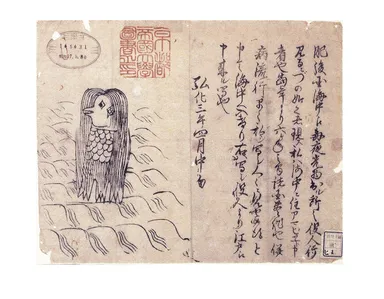 京都
帝國大學
圖書之印
肥後国海中え毎夜光物出ル所之役人行
見るニづの如之者現ス私ハ海中ニ住アマビヱト申
者也当年より六ヶ年之間諸国豊作也併
病流行早々私シ写シ人々ニ見せ候得と
申て海中へ入けり右ハ写シ役人より江戸え
申来ル写也
弘化三年四月中旬